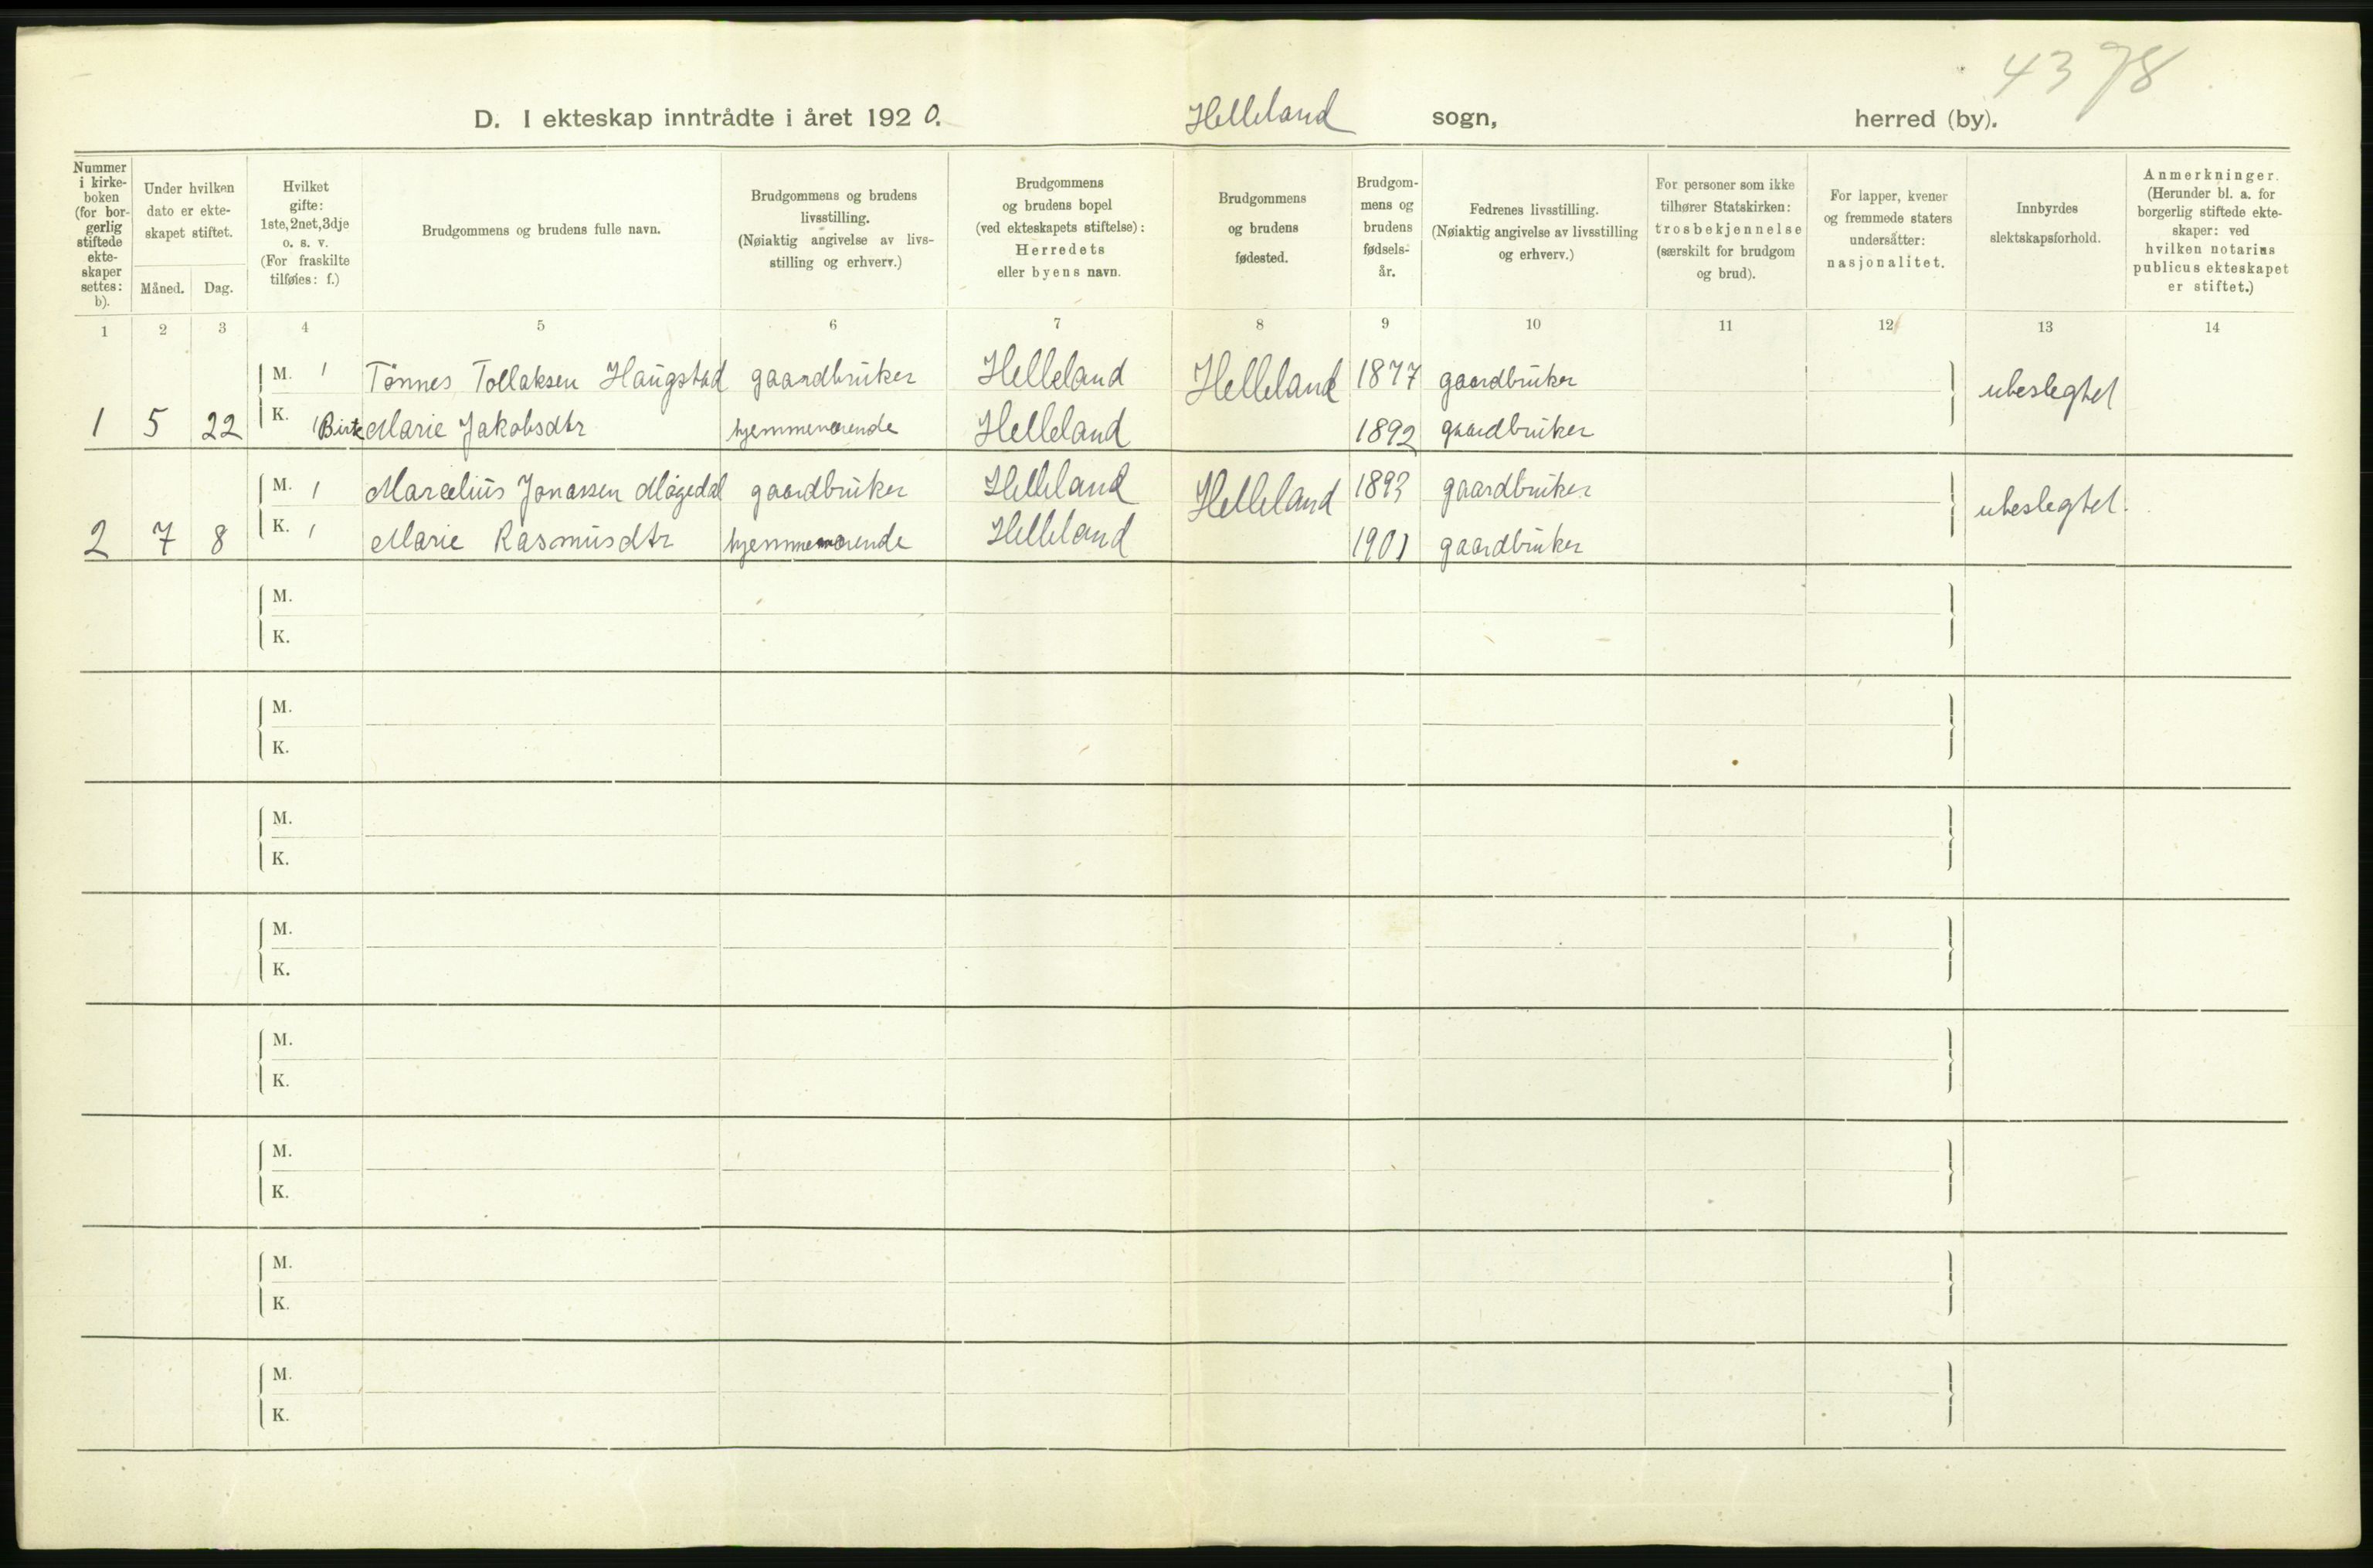 43 78
D. I ekteskap inntrådte i året 1920. Helleland sogn, herred (by).
Nummer
i kirke-
boken
(for bor-
gerlig
stiftede
ekte-
skaper
settes:
b).
Under hvilken
dato er ekte-
skapet stiftet.
Måned. Dag.
Hvilket
gifte:
1ste, 2net, 3dje
o. s. v.
(For fraskilte
tilføies: f.)
Brudgommens og brudens fulle navn.
Brudgommens og brudens
livsstilling.
(Nøiaktig angivelse av livs-
stilling og erhverv.)
Brudgommens
og brudens bopel
(ved ekteskapets stiftelse):
Herredets
eller byens navn.
Brudgommens
og brudens
fødested.
Brudgom-
mens og
brudens
fødsels-
år.
Fedrenes livsstilling.
(Nøiaktig angivelse av livsstilling
og erhverv.)
For personer som ikke
tilhører Statskirken:
trosbekjennelse
(særskilt for brudgom
og brud).
For lapper, kvener
og fremmede staters
undersåtter:
nasjonalitet.
Innbyrdes
slektskapsforhold.
Anmerkninger.
(Herunder bl. a. for
borgerlig stiftede ekte-
skaper: ved
hvilken notarius
publicus ekteskapet
er stiftet.)
1 2 3 4 5 6 7 8 9 10 11 12 13 14
M. 1 Tønnes Tollaksen Haugstad gaardbruker Helleland Helleland 1877 gaardbruker ubeslegtet
1 5 22 K. 1 Birte Marie Jakobsdtr hjemmeværende Helleland 1892 gaardbruker
M. 1 Marselius Jonassen Møgedal gaardbruker Helleland Helleland 1893 gaardbruker ubeslegtet.
2 7 8 K. 1 Marie Rasmusdtr hjemmeværende Helleland 1901 gaardbruker
M.
K.
M.
K.
M.
K.
M.
K.
M.
K.
M.
K.
M.
K.
M.
K.